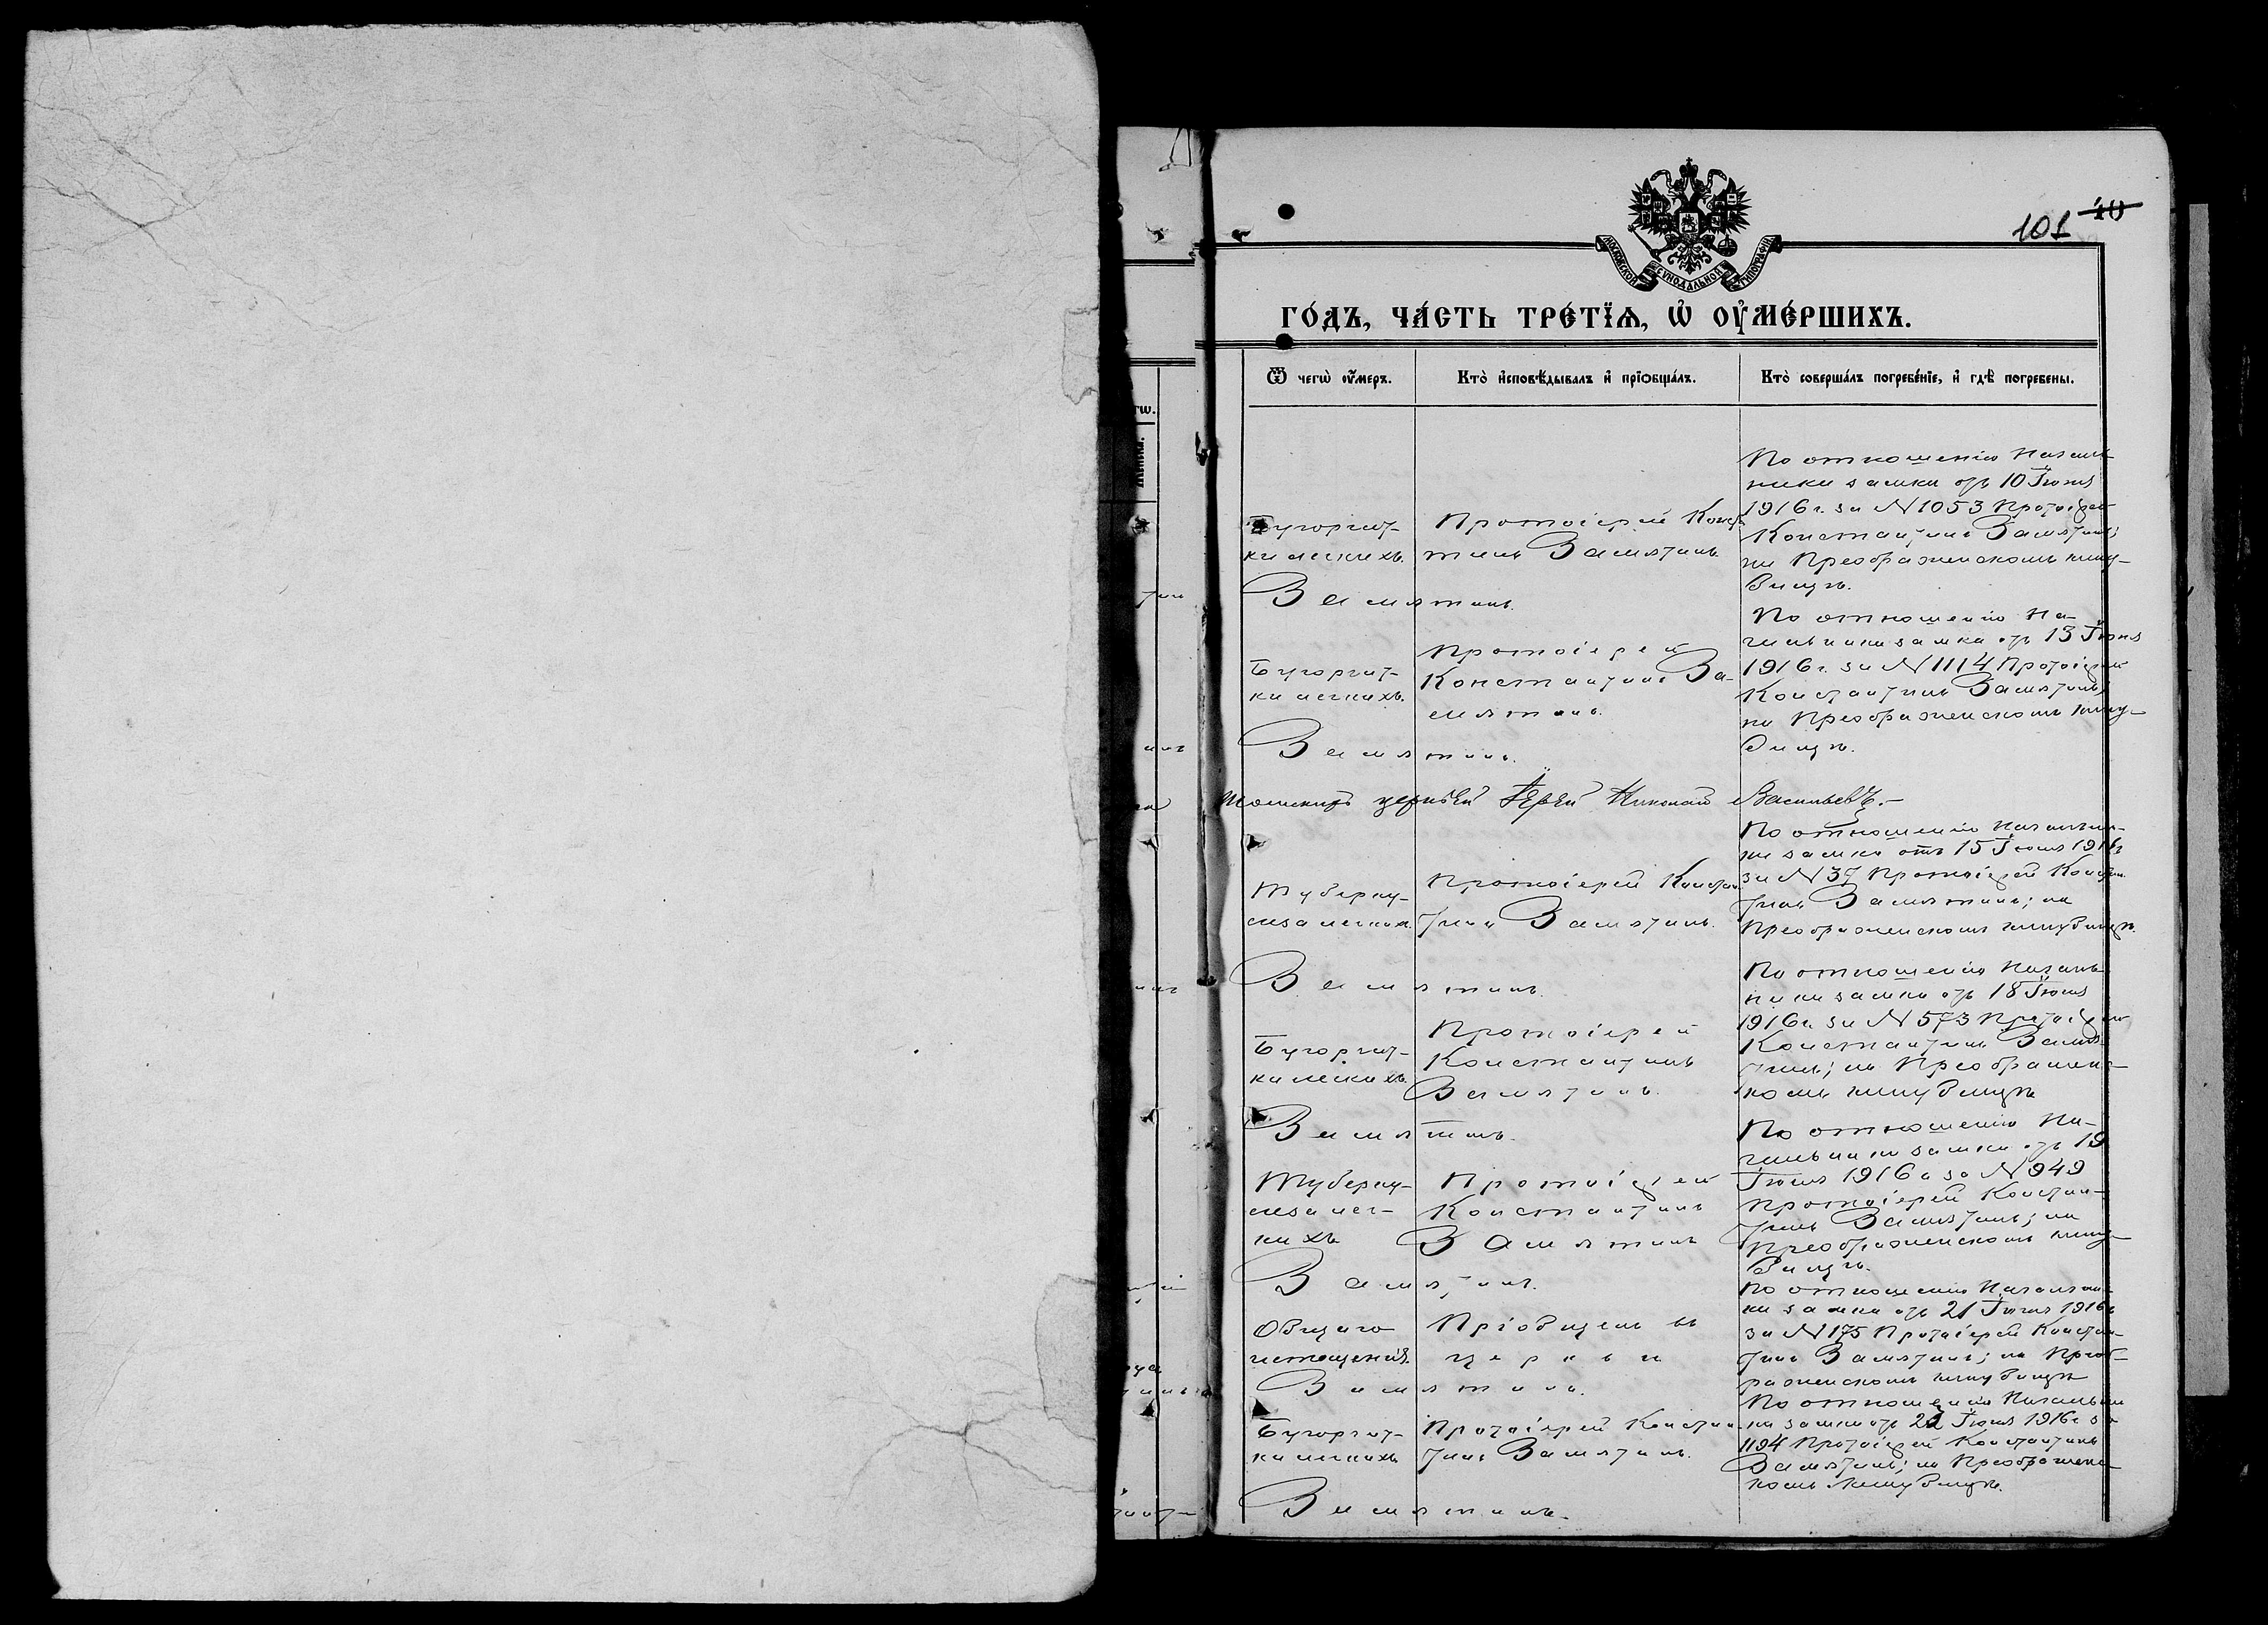 101 40
МОСКОВСКОЙ СѴНОДАЛЬНОЙ ТИПОГРАФІИ
ГО́ДЪ, ЧА́СТЬ ТРЕ́ТЇѦ, Ѡ҆ ОУ҆МЕ́РШИХЪ.
Ѿ чегѡ̀ оу҆́меръ.
Кто̀ и҆сповѣ́дывалъ и҆ прїѻбща́лъ.
Кто̀ соверша́лъ погребе́нїе, и҆ гдѣ̀ погребены.
Бугорчат-
ки легкихъ.
Протоіерей Конст
тинъ Замятинъ
По отношенію началь-
ника замка отъ 10 Іюня
1916 г. за N 1053 Протоіерей
Константинъ Замятинъ;
на Преображенскомъ клад-
бищѣ.
Замятинъ.
Бугорчат-
ки легкихъ.
Протоіерей
Константинъ За-
мятинъ.
По отношенію на-
чальника замка отъ 13 Іюня
1916 г. за N 1114 Протоіерей
Константинъ Замятинъ;
на Преображенскомъ клад-
бищѣ.
Замятинъ.
церквей Іерей Николай Васильевъ.-
Туберку-
леза легких.
Протоіерей Констан
тинъ Замятинъ.
По отношенію начальни-
ка замка отъ 15 Іюня 1916 г
за N 37 Протоіерей Констан
тинъ Замятинъ; на
Преображенскомъ кладбищѣ.
Замятинъ.
Бугорчат-
ки легкихъ.
Протоіерей
Константинъ
Замятинъ.
По отношенію началь
ника замка отъ 18 Іюня
1916 г. за N 573 Протоіерей
Константинъ Замя-
тинъ; на Преображенс-
комъ кладбищѣ
Замятинъ.
Туберку-
леза лег-
кихъ
Протоіерей
Константинъ
Замятинъ
По отношенію на-
чальника замка отъ 19
Іюня 1916 г за N 949
Протоіерей Констан-
тинъ Замятинъ; на
Преображенскомъ клад-
бищѣ.
Замятинъ.
Общаго
истощенія.
Пріобщенъ въ
церкви
По отношенію начальни-
ка замка отъ 21 Іюня 1916 г
за N 175 Протоіерей Констан-
тинъ Замятинъ; на Преоб-
раженскомъ кладбищѣ
Замятинъ.
Бугорчат-
ки легкихъ
Протоіерей Констан
тинъ Замятинъ.
По отношенію начальни
ка замка отъ 22 Іюня 1916 г за
1194 Протоіерей Константинъ
Замятинъ; на Преображенс-
комъ кладбищѣ.
Замятинъ.